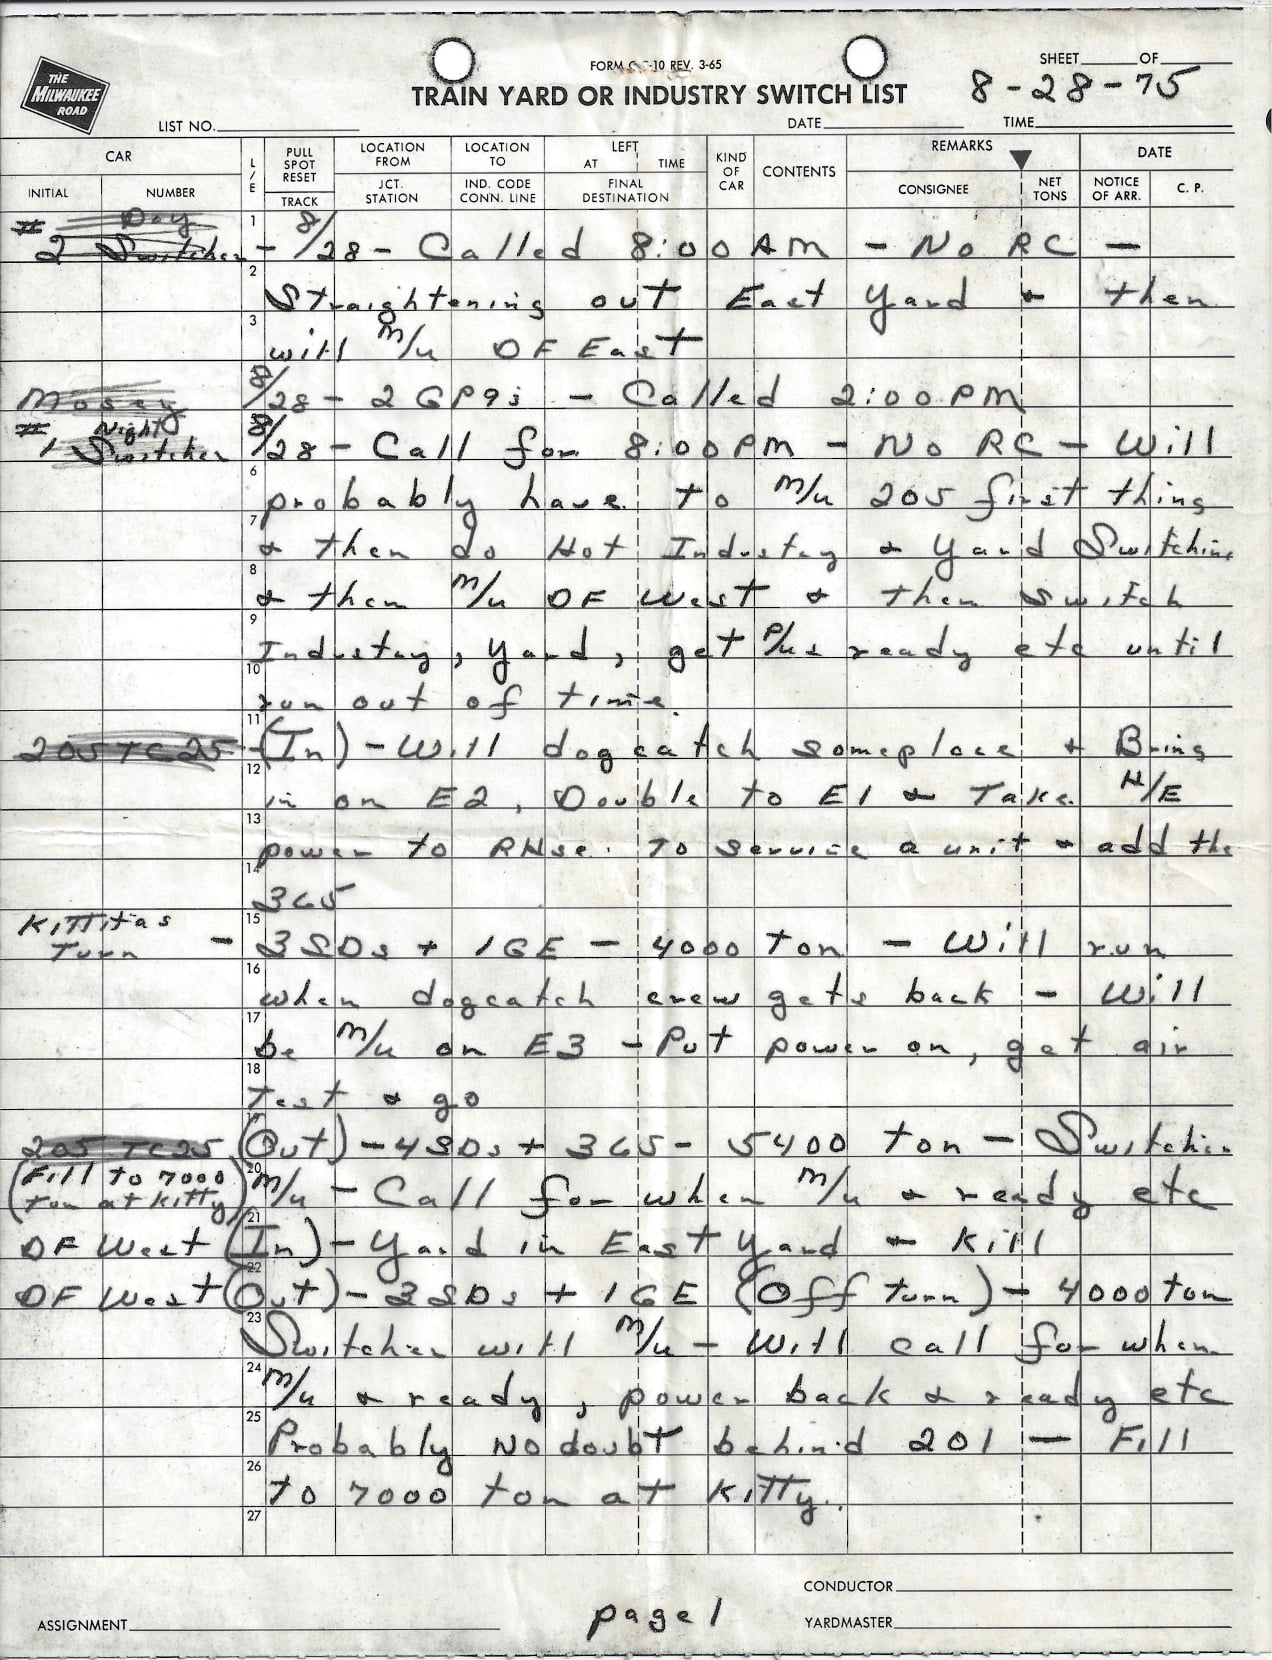 THE
MILWAUKEE
ROAD
FORM -10 REV. 3-65
SHEET OF
TRAIN YARD OR INDUSTRY SWITCH LIST
8-28-75
LIST NO.
DATE TIME
CAR
L/E
PULL
SPOT
RESET
TRACK
LOCATION
FROM
JCT.
STATION
LOCATION
TO
IND. CODE
CONN. LINE
LEFT
AT TIME
FINAL
DESTINATION
KIND
OF
CAR
CONTENTS
REMARKS
CONSIGNEE
NET
TONS
DATE
NOTICE
OF ARR.
C. P.
INITIAL NUMBER
# Day
2 Switcher - 8/28 - Called 8:00 AM - No RC -
1
2
Straightening out East Yard & then
3
will M/u DF East
Mosey 8/28 - 2 GP9s - Called 2:00 PM
# Night
1 Switcher 8/28 - Call for 8:00 PM - No RC - Will
6
probably have to M/u 205 first thing
7
& then do Hot Industry & Yard Switching
8
& then M/u DF West & then switch
9
Industry, yard, get P/us ready etc until
10
run out of time.
11
205 TC25 - (In) - Will dogcatch someplace & Bring
12
in on E2, Double to E1 & Take H/E
13
power to RHse. to service a unit & add the
14
365
15
Kittitas
Turn - 3 SDs + 1 GE - 4000 ton - Will run
16
when dogcatch crew gets back - Will
17
be M/u on E3 - Put power on, get air
18
Test & go
19
205 TC25 (Out) - 4 SDs + 365 - 5400 ton - Switcher
20
(Fill to 7000
ton at Kitty) M/u - Call for when M/u & ready etc
21
DF West (In) - Yard in East Yard & Kill
22
DF West (Out) - 3 SDs + 1 GE (Off turn) - 4000 ton
23
Switcher will M/u - Will call for when
24
M/u & ready, power back & ready etc
25
Probably No doubt behind 201 - Fill
26
to 7000 ton at Kitty.
27
CONDUCTOR
ASSIGNMENT
page 1
YARDMASTER